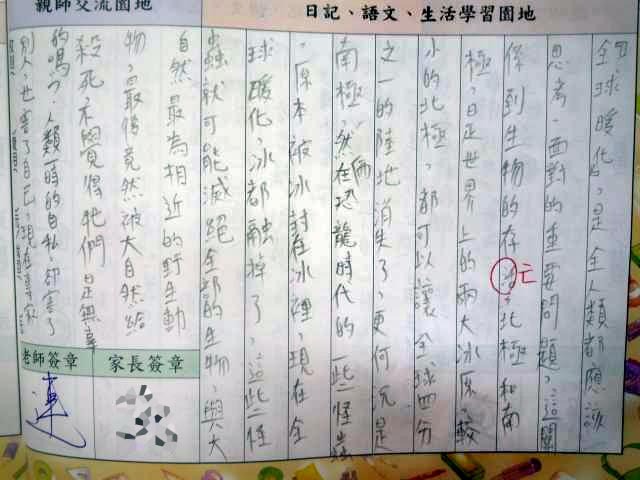 親師交流園地
日記、語文、生活學習園地
「全球暖化」是全人類都應該
思考、面對的重要問題,這關
係到生物的存活,北極和南
亡
極,是世界上的兩大冰原,較
小的北極,都可以讓全球四分
之一的陸地消失了,更何況是
南極,然而在恐龍時代的一些怪蟲
,原本被冰封在冰裡,現在全
球暖化,冰都融掉了,這些怪
蟲就可能滅絕全部的生物,與大
自然最為相近的野生動
物,最後竟然被大自然給
殺死,不覺得牠們是無辜
的嗎?人類一時的自私,卻害了
別人,也害了自己,現在專家
老師簽章
家長簽章